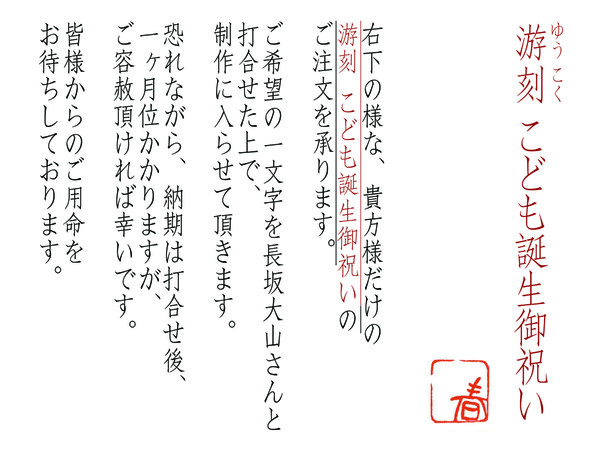 游刻 こども誕生御祝い
ゆうこく
春
右下の様な、貴方様だけの
游刻 こども誕生御祝いの
ご注文を承ります。
ご希望の一文字を長坂大山さんと
打合せた上で、
制作に入らせて頂きます。
恐れながら、納期は打合せ後、
一ヶ月位かかりますが、
ご容赦頂ければ幸いです。
皆様からのご用命を
お待ちしております。